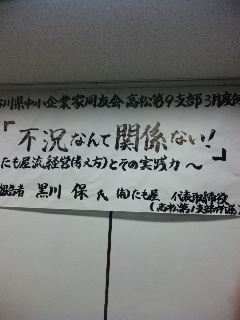 川県中小企業家同友会 高松第9支部 3月度例
「不況なんて関係ない!」
にも屋流経営(考え方)とその実践力〜
報告者 黒川 保 氏 (有)にも屋 代表取締役
(高松第1支部所属)